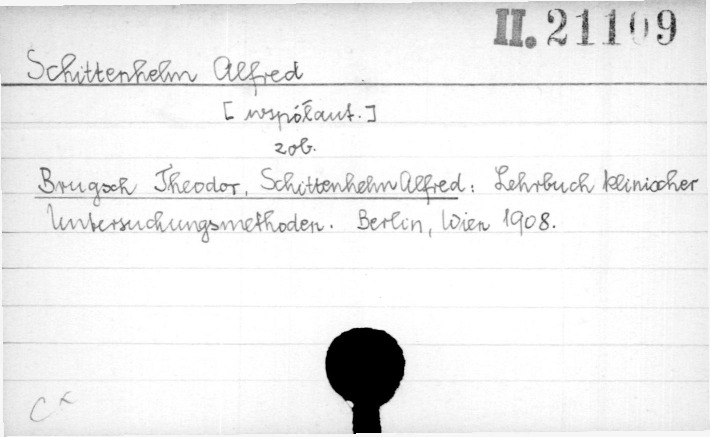 II. 21109
Schittenhelm Alfred
[współaut.]
zob.
Brugsch Theodor, Schittenhelm Alfred: Lehrbuch klinischer
Untersuchungsmethoden. Berlin, Wien 1908.